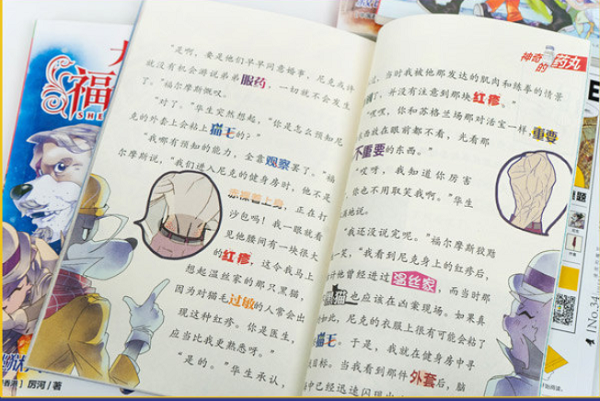 “是啊，要是他们早早同意婚事，尼克或许
就没有机会游说弟弟服药，一切就不会发生
了。”福尔摩斯慨叹。
“对了。”华生突然想起，“你是怎么预知尼
克的外套上会粘上猫毛的？”
“我哪有预知的能力，全靠观察罢了。”福
尔摩斯说，“我们进入尼克的健身房时，他不是
赤裸着上身，正在打
沙包吗！我一眼就看
见他腰间有一块很大
的红疹，这令我马上
想起温丝家的那只黑猫，
因为对猫毛过敏的人常会出
现这种红疹。你是医生，
应当比我更熟悉呀。”
“是的。”华生承认，
神奇的药丸
是，当时我被他那发达的肌肉和练拳的情景
了，并没有注意到那块红疹。”
“哎，你和苏格兰场那对活宝一样，重要
放在眼前都不看，光看那
不重要的东西。”
“哎呀，我知道你厉害
，你也不用取笑我啊。”华生
满地说。
“我还没说完呢。”福尔摩斯狡黠
一笑，“我看到尼克身上的红疹后，
计他曾经进过温丝家，而当时那
黑猫也应该在凶案现场。如果真
如此，尼克的衣服上很有可能会粘了
猫毛。于是，我就在健身房中寻
目标。当我看到那件外套后，脑
中已经迅速闪现出
福
厉河／著
No.34